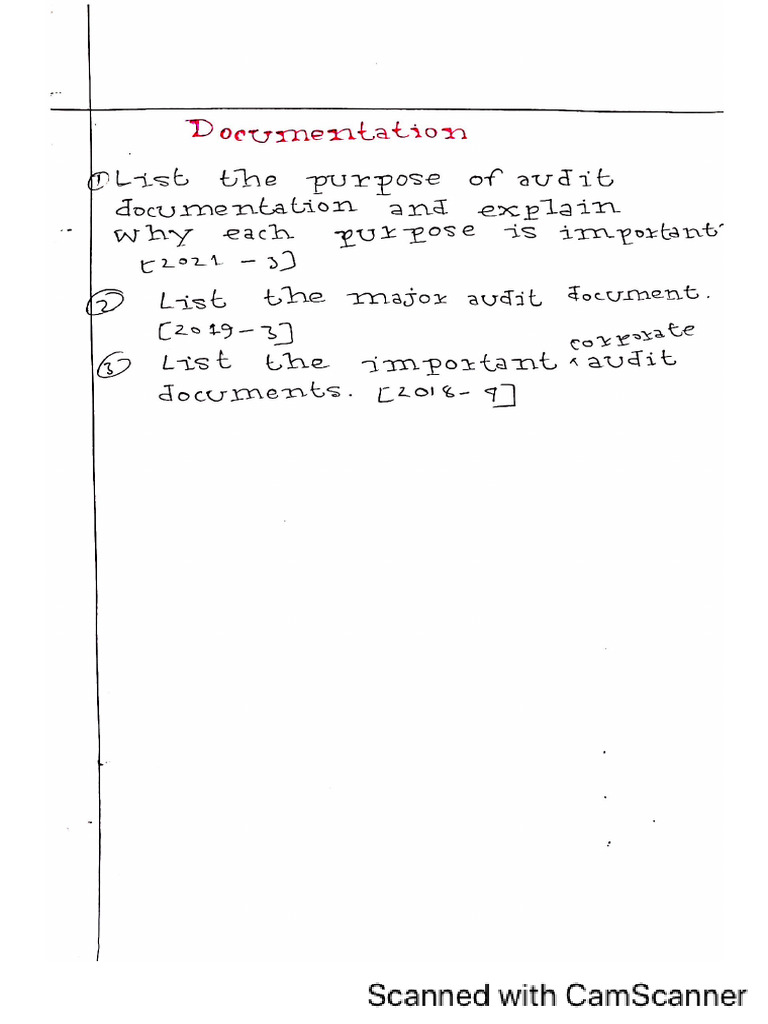 Documentation
① List the purpose of audit
documentation and explain
why each purpose is important
[2021 - 3]
② List the major audit document.
[2019-3]
corporate
③ List the important ^ audit
documents. [2018- 9]
Scanned with CamScanner